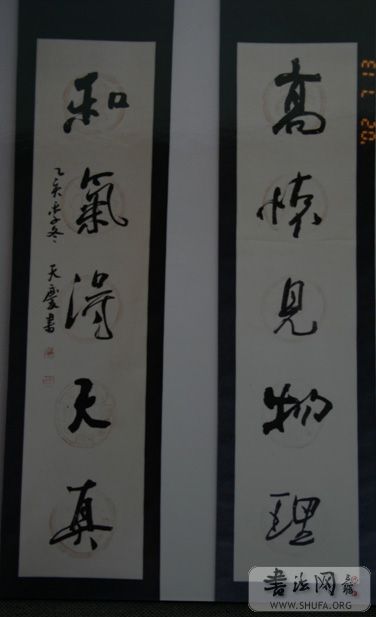 高懷見物理
和氣得天真
乙亥季冬 天慶書
'02 7 13
書法网
WWW.SHUFA.ORG